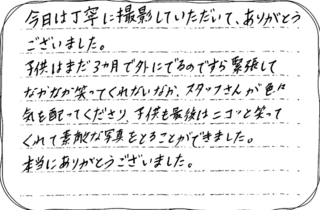 今日は丁寧に撮影していただいて、ありがとう
ございました。
子供はまだ3ヵ月で外にでるのですら緊張して
なかなか笑ってくれないなか、スタッフさんが色々
気を配ってくださり、子供も最後はニコッと笑って
くれて素敵な写真をとることができました。
本当にありがとうございました。